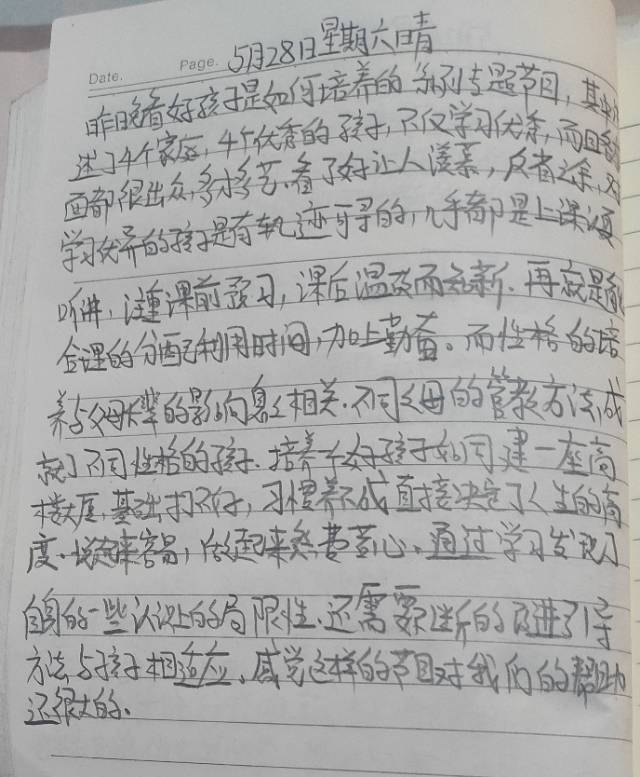 Date. Page. 5月28日星期六晴
昨晚看好孩子是如何培养的系列专题节目,其中
述了4个家庭,4个优秀的孩子,不仅学习优秀,而且
面都很出众,多才多艺.看了好让人羡慕,反省之余,对
学习优秀的孩子是有轨迹可寻的,几乎都是上课认真
听讲,注重课前预习,课后温故而知新.再就是能
合理的分配利用时间,加上勤奋。而性格的培
养与父母大辈的影响息息相关.不同父母的管教方法,成
就了不同性格的孩子.培养个好孩子如同建一座高
楼大厦,基础打不好,习惯养不成直接决定了人生的高
度.说起来容易,做起来煞费苦心.通过学习发现了
自身的一些认识上的局限性.还需要逐渐的改进引导
方法与孩子相适应.感觉这样的节目对我们的帮助
还很大的.